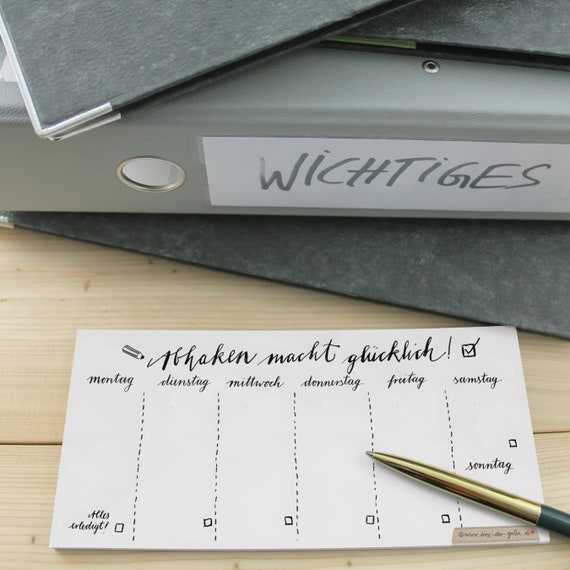 WiCHTiGES
Abhaken macht glücklich!
montag dienstag mittwoch donnerstag freitag samstag
sonntag
Alles
erledigt!